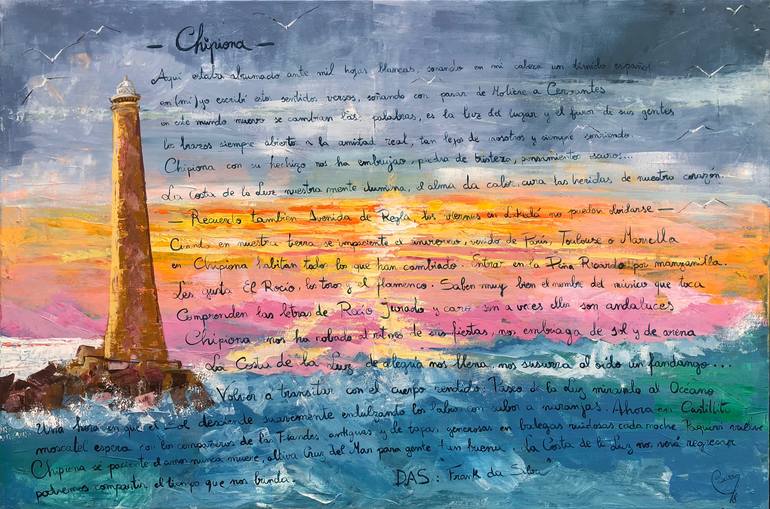 — Chipiona —
Aquí estaba abrumado ante mil hojas blancas, sonando en mi cabeza un tímido español
yo escribí esto sentidos versos, soñando con pasar de Molière a Cervantes
en este mundo nuevo se cambian las palabras, es la luz del lugar y el furor de sus gentes
los brazos siempre abierto a la amistad real, tan lejos de nosotros y siempre sonriendo
Chipiona con su hechizo nos ha embrujao, piedra de tristeza, pensamientos oscuros...
La Costa de la Luz nuestra mente ilumina, el alma da calor, cura las heridas de nuestro corazón
— Recuerdo tambien Avenida de Regla, los viernes in no puedon olvidarse —
en nuestra tierra se impaciente el marinero, venido de París, Toulouse o Marsella
en Chipiona habitan todo los que han cambiado. Entrar en la Peña Ricardo por manzanilla.
Les gusta El Rocío, los toro y el flamenco. Saben muy bien el nombre del músico que toca
Comprenden las letras de Rocío Jurado y caro sin a veces ellos son andaluces
Chipiona nos ha robado al ritmo de sus fiestas, nos embriaga de sol y de arena
La Costa de la Luz de alegría nos llena, nos susurra al oído un fandango...
Volver a transitar con el cuerpo rendido: Paseo de la Luz mirando al Oceano
Una hora en que el Sol desciende suavemente endulzando los labios con sabor a naranjas. Ahora en Castillito
moscatel espera con los compañeros de antiguas y de tapas, generosas en bodegas ruidosas cada noche
Chipiona se paciente el amor nunca muere, altiva Cruz del Mar para gente "un buena". la Costa de la Luz nos verá regresar
podremos compartir el tiempo que nos brinda. DAS: Frank da Silva